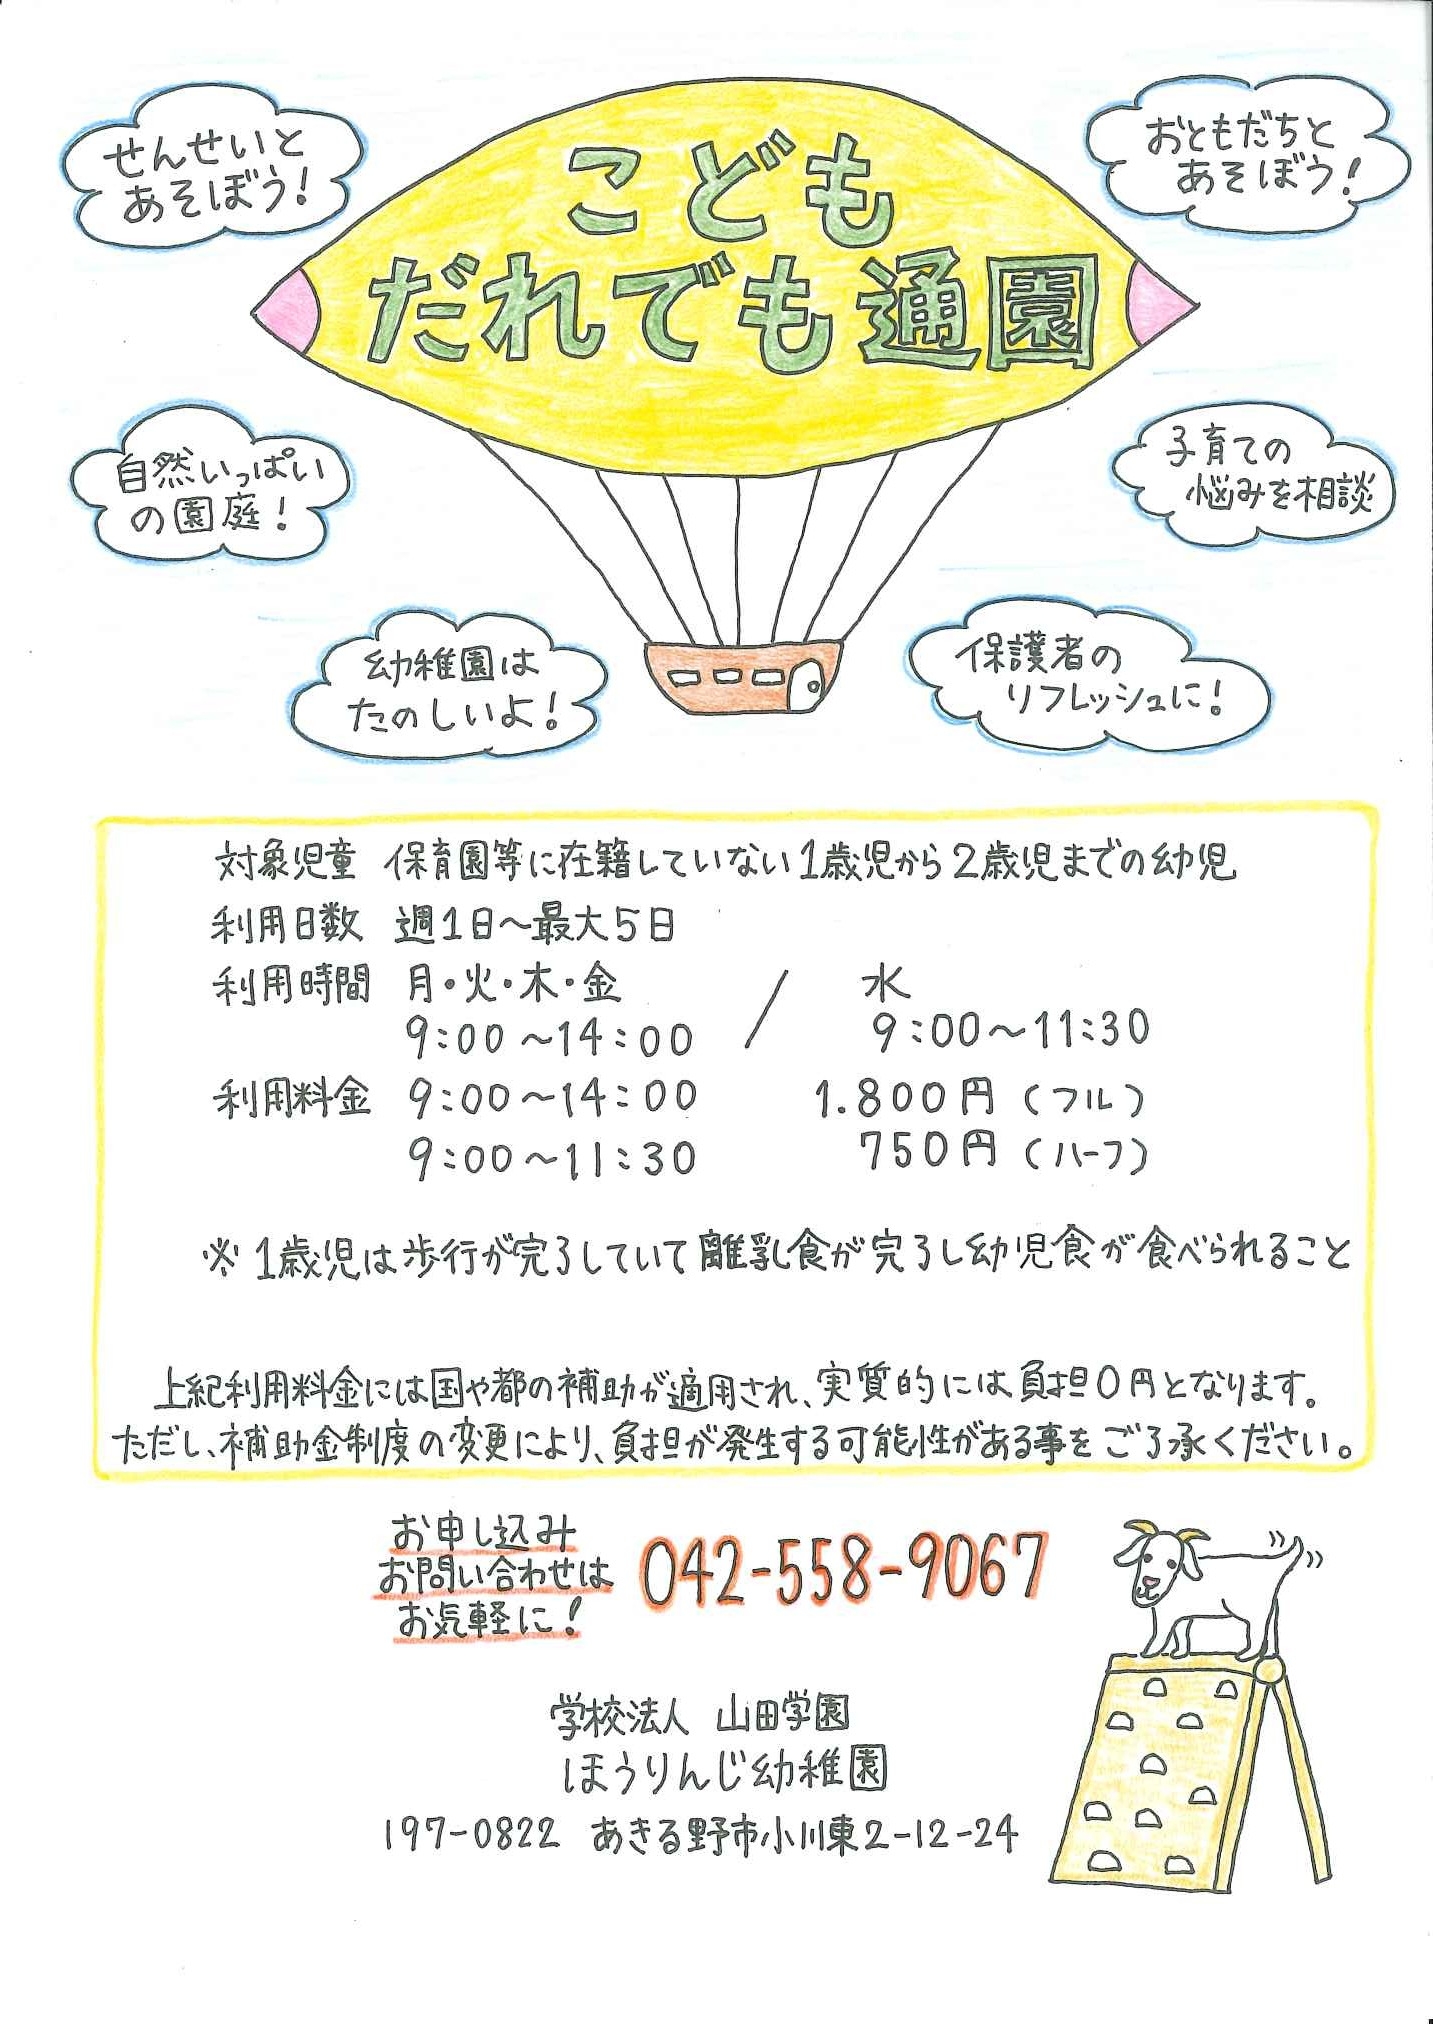 せんせいと
あそぼう!
おともだちと
あそぼう!
こども
だれでも通園
自然いっぱい
の園庭!
子育ての
悩みを相談
幼稚園は
たのしいよ!
保護者の
リフレッシュに!
対象児童 保育園等に在籍していない1歳児から2歳児までの幼児
利用日数 週1日~最大5日
利用時間 月・火・木・金 / 水
9:00~14:00 9:00~11:30
利用料金 9:00~14:00 1.800円(フル)
9:00~11:30 750円(ハーフ)
※1歳児は歩行が完了していて離乳食が完了し幼児食が食べられること
上紀利用料金には国や都の補助が適用され、実質的には負担0円となります。
ただし、補助金制度の変更により、負担が発生する可能性がある事をご了承ください。
お申し込み
お問い合わせは
お気軽に!
042-558-9067
学校法人 山田学園
ほうりんじ幼稚園
197-0822 あきる野市小川東2-12-24